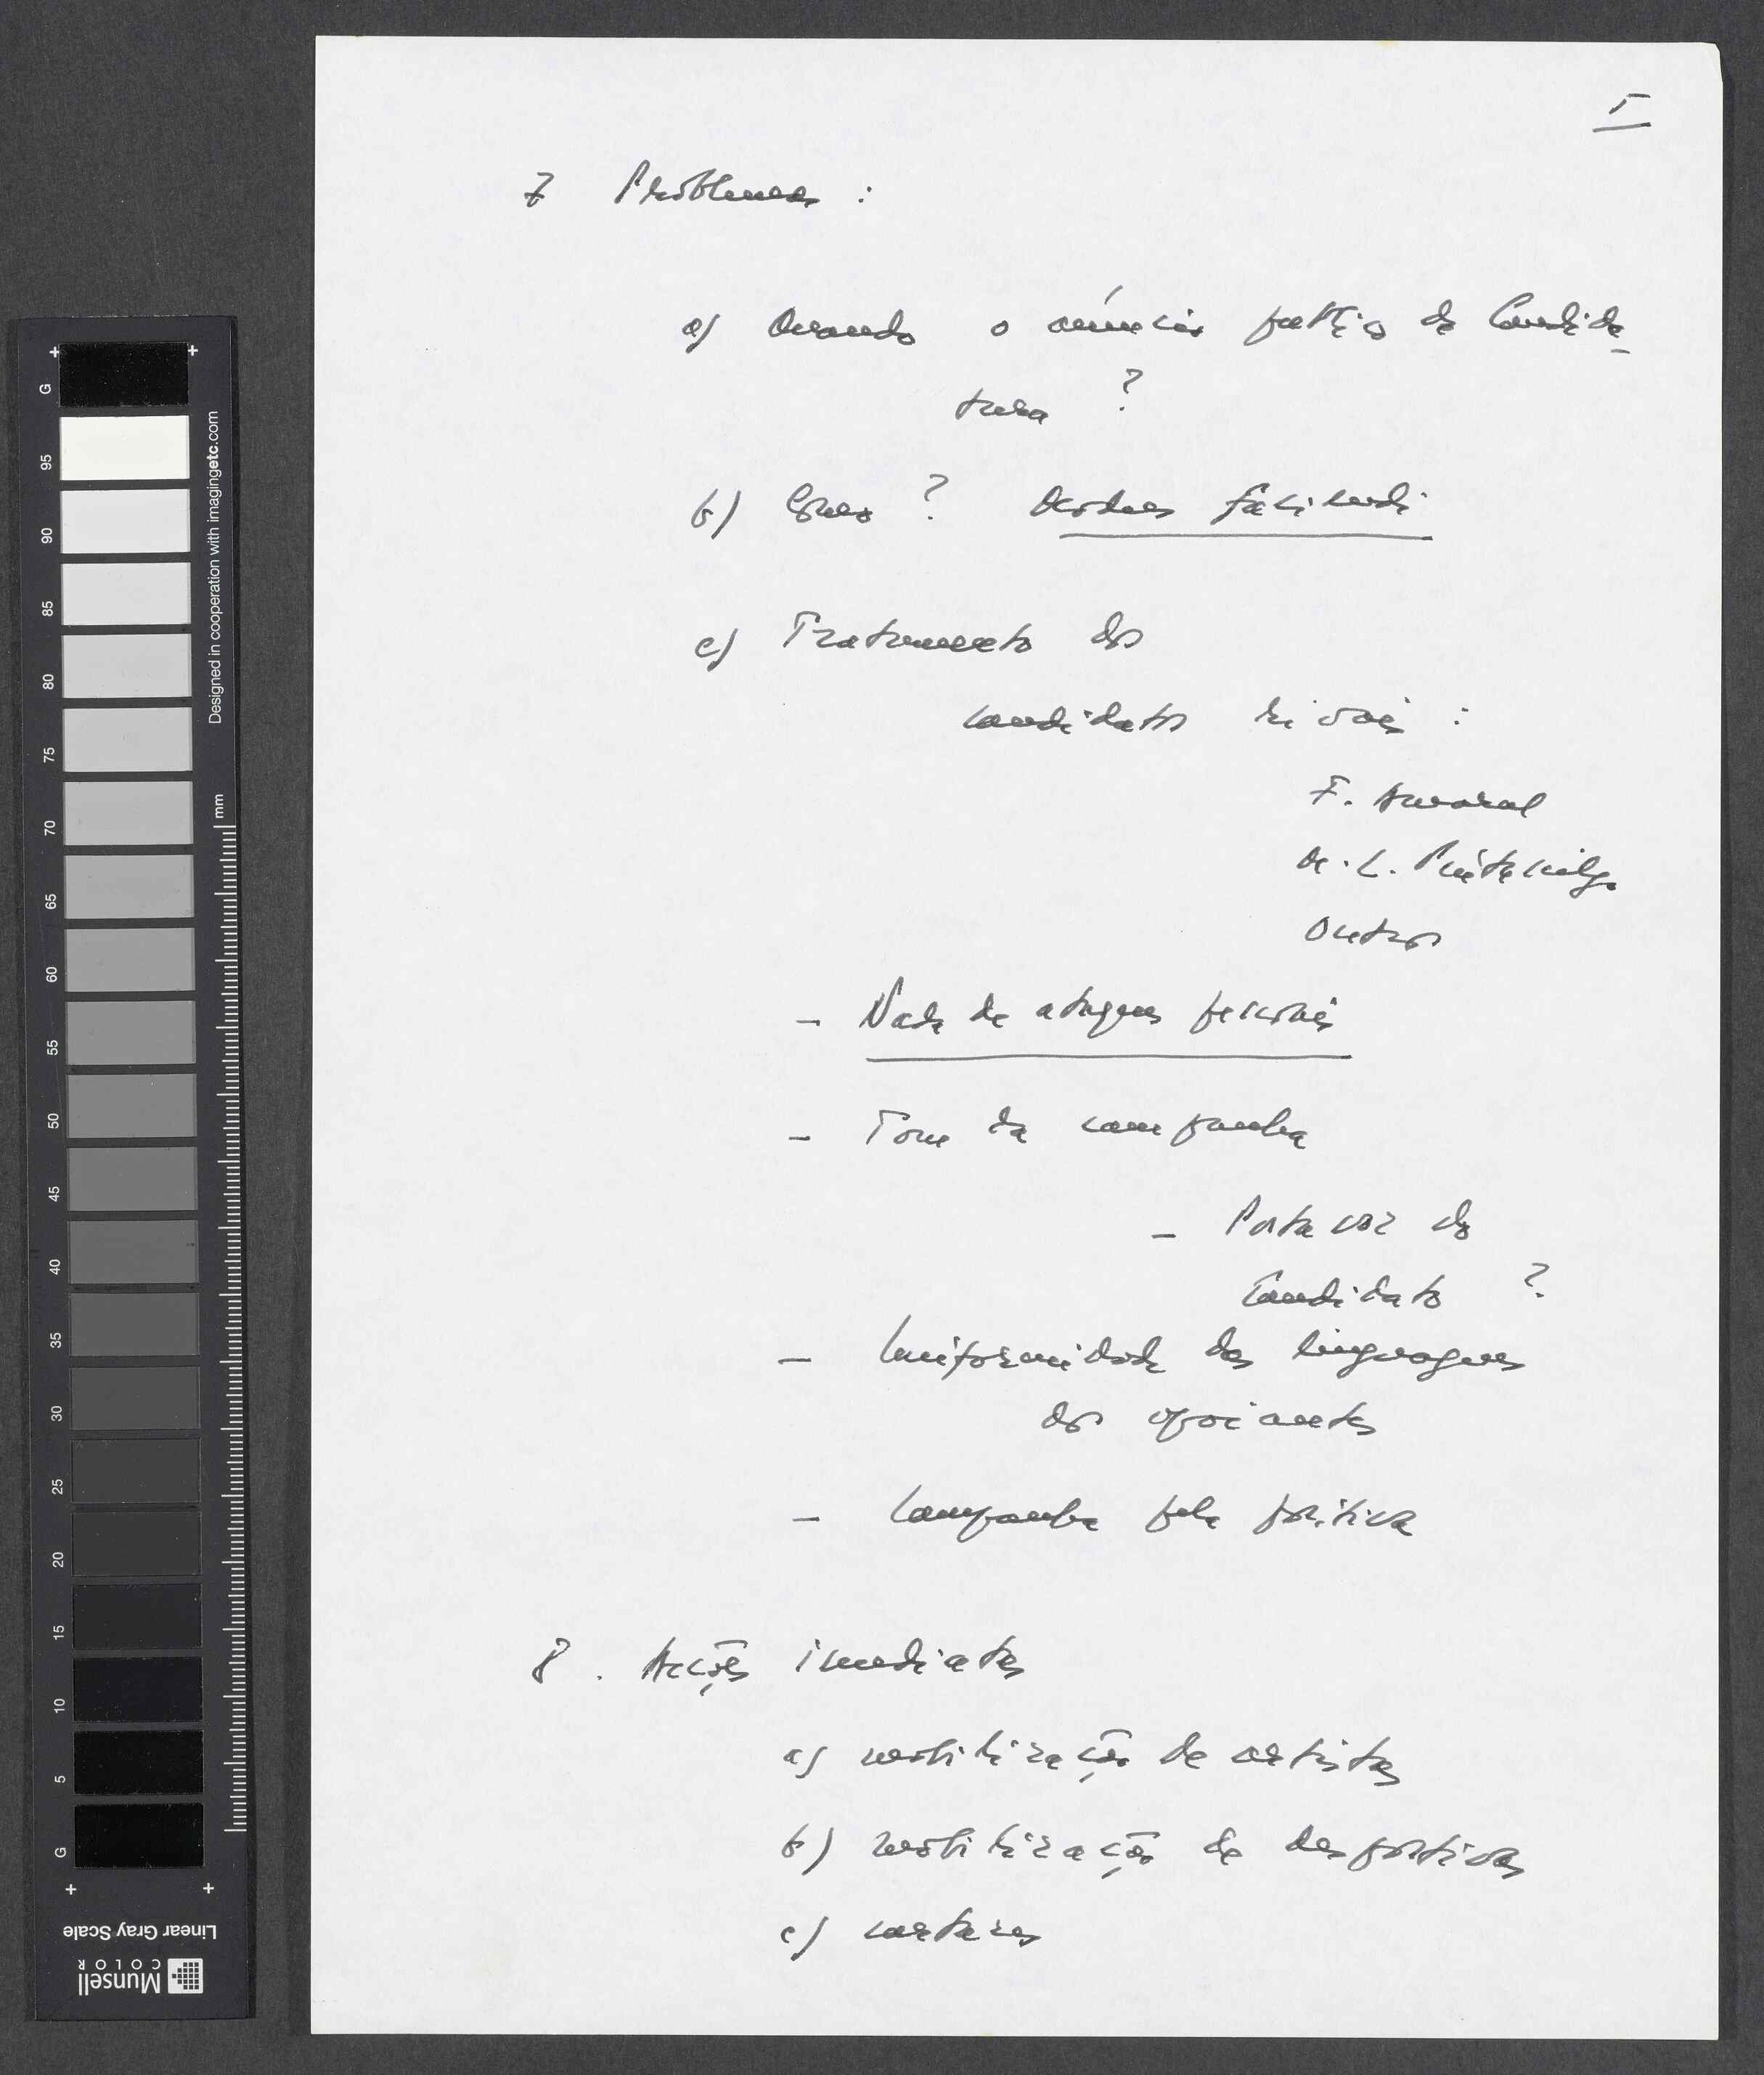 5
7 Problemas :
a) Quando o anúncio público da Candida-
tura ?
b) Como ? Modus faciendi
c) Tratamento dos
candidatos rivais :
F. Amaral
M. L. Pintasilgo
Outros
- Nada de ataques pessoais
- Tom da campanha
- Porta voz do
Candidato ?
- Uniformidade das linguagens
dos apoiantes
- Campanha pela positiva
8. Acções imediatas
a) mobilização de artistas
b) mobilização de desportistas
c) cartazes
+ +
G
95
90
85
80
75
70
65
60
55
50
45
40
35
30
25
20
15
10
5
G
+ +
Designed in cooperation with imagingetc.com
mm
Linear Gray Scale
Munsell
COLOR